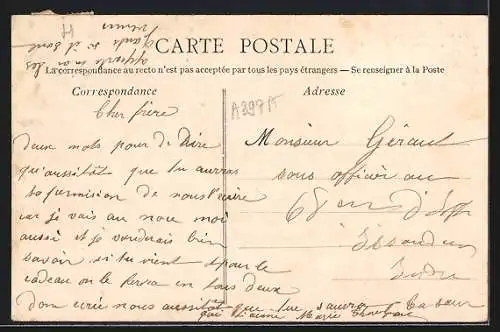 CARTE POSTALE
La correspondance au recto n'est pas acceptée par tous les pays étrangers — Se renseigner à la Poste
Correspondance
Adresse
A397A
Cher frère
deux mots pour de dire
qu'aussitôt que tu auras
ta permision de nous
car je vais au moi
aussi et je voudrais bien
savoir si tu vient pour le
cadeau on le fera en tous deux
nous aussitôt que tu sauras
qui t'aime Marie
Monsieur Géraut
sous officier au
68 em d'
Issoudun
Indre